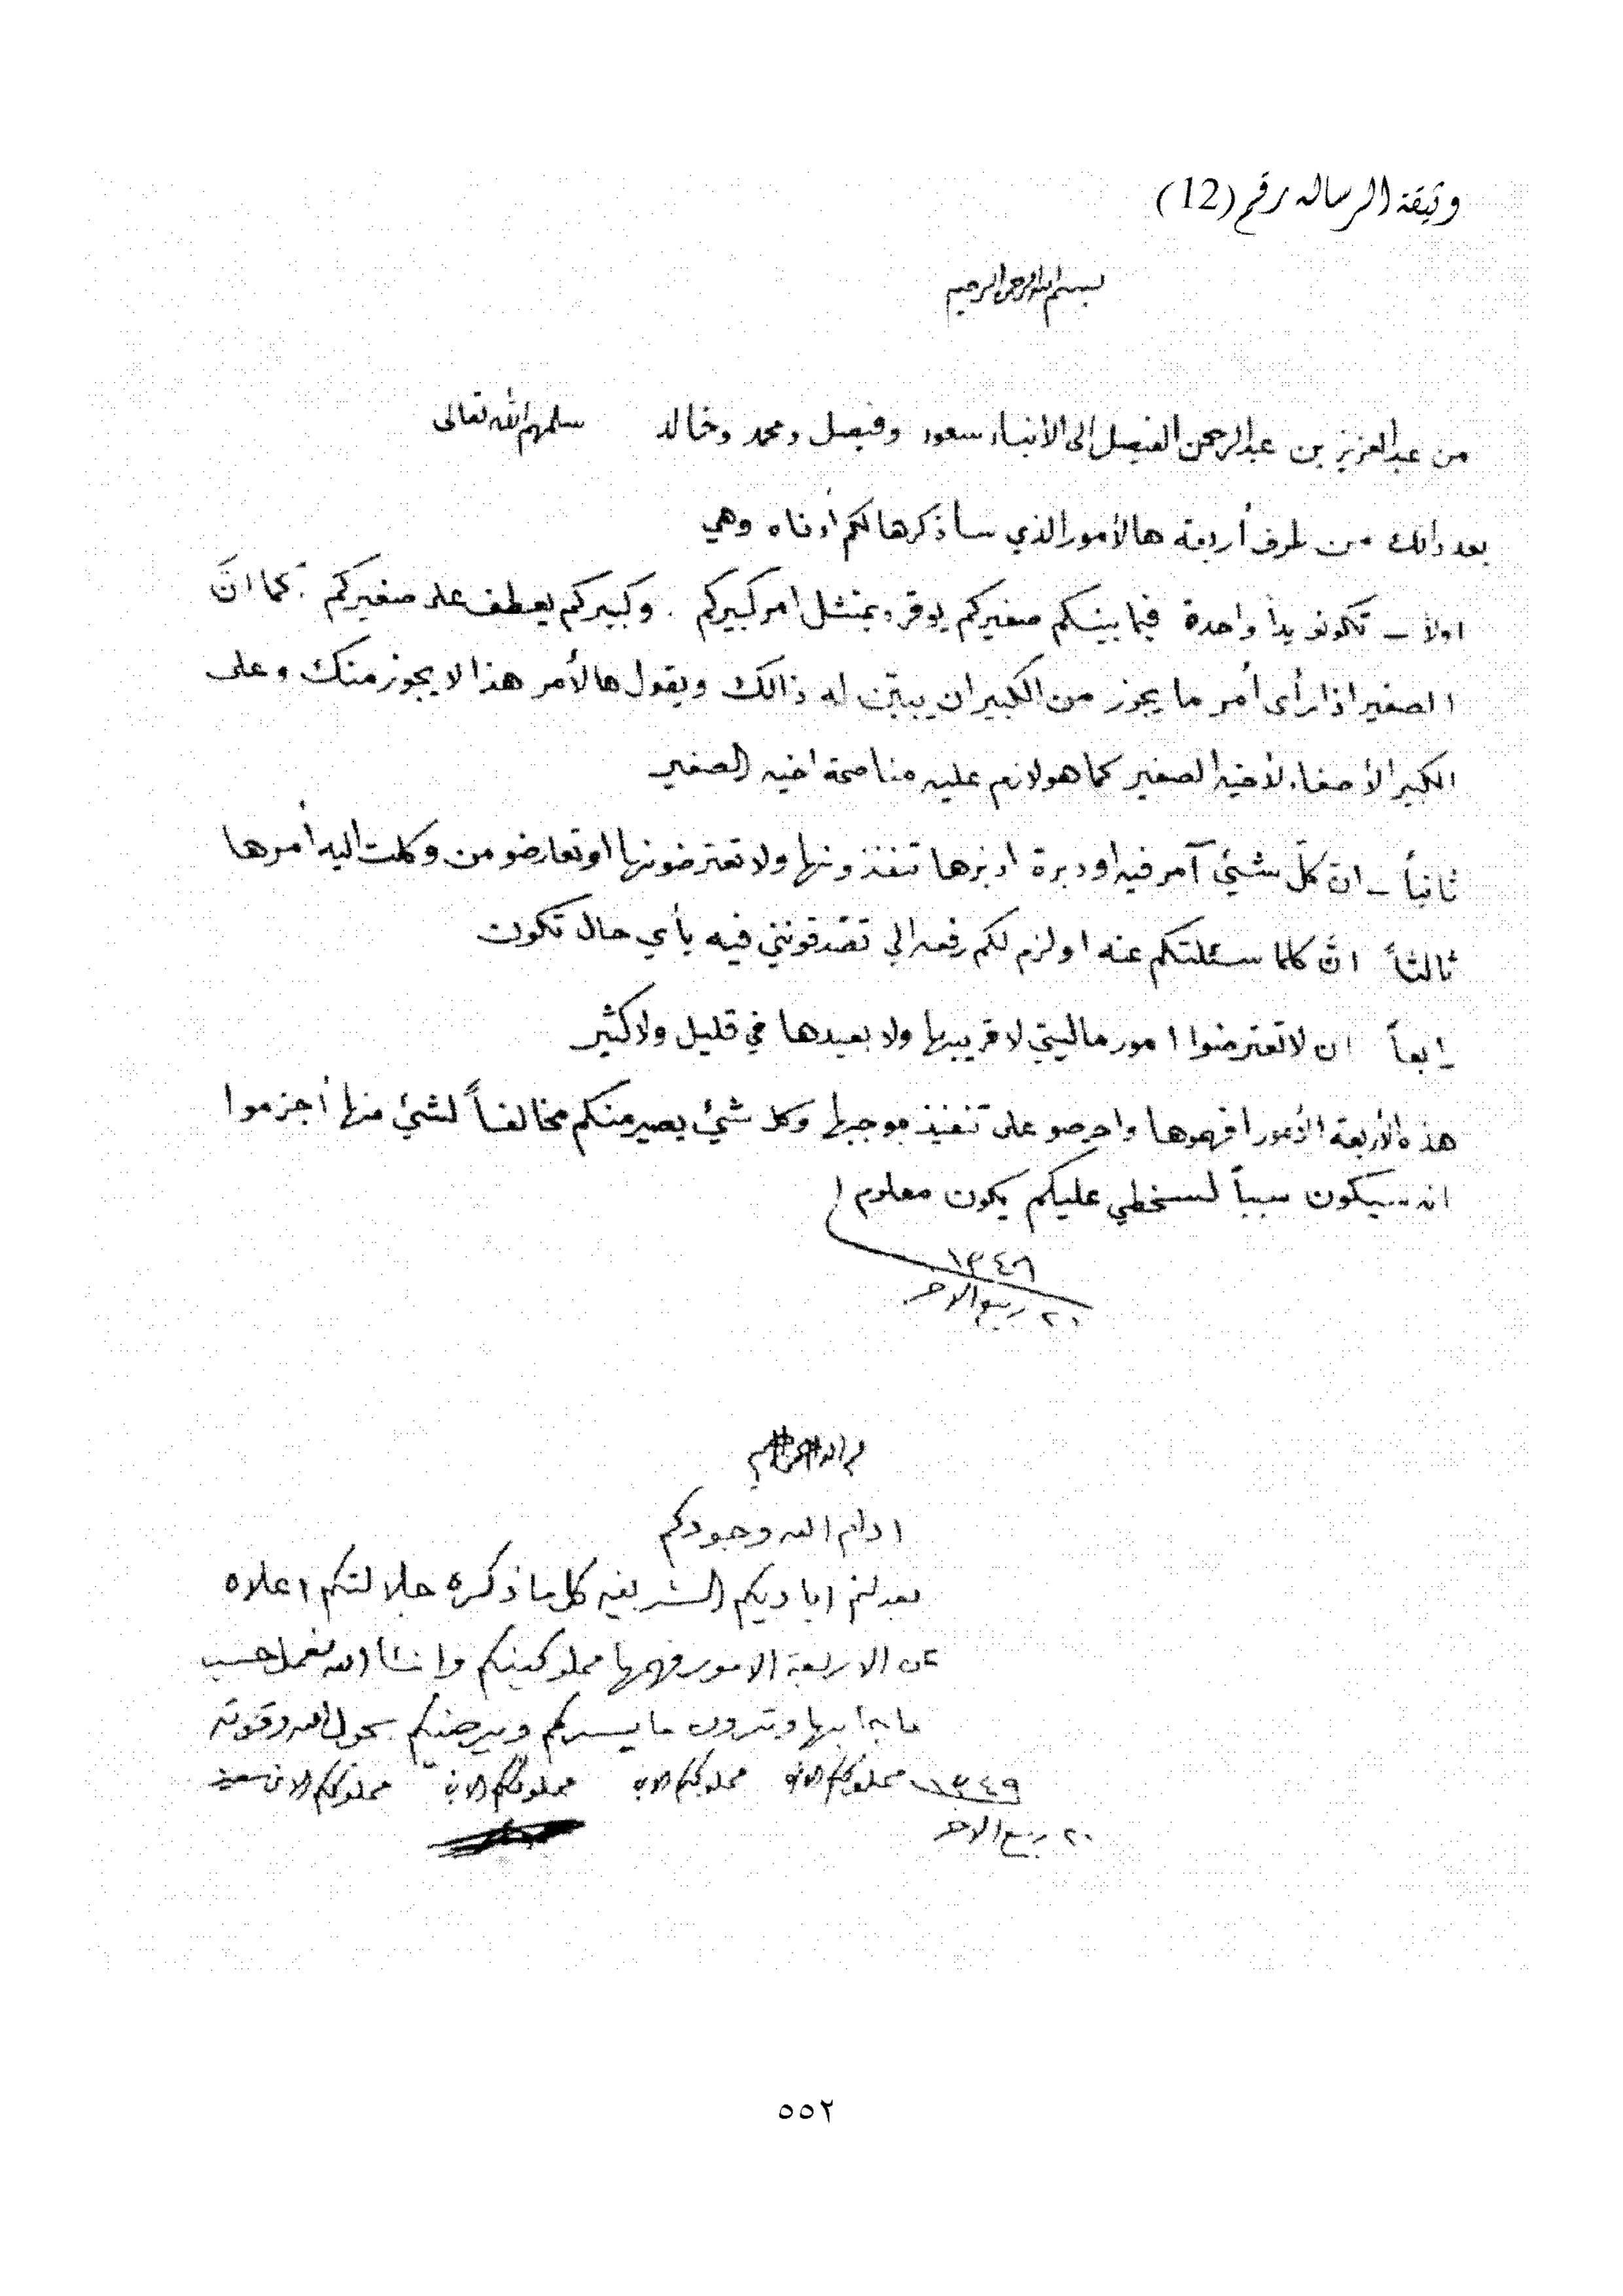 وثيقة الرساله رقم (12)
بسم الله الرحمن الرحيم
من عبدالعزيز بن عبدالرحمن الفيصل الى الأبناء سعود وفيصل ومحمد وخالد سلمهم الله تعالى
بعد ذالك من طرف أربعة هالأمور الذي سأذكرها لكم أدناه وهي
اولاً ـ تكونو يداً واحدة فيما بينكم صغيركم يوقر ويمتثل امر كبيركم . وكبيركم يعطف على صغيركم . كما انّ
الصغير اذا رأى أمر ما يجوز من الكبير ان يبيّن له ذالك ويقول هالأمر هذا لا يجوز منك وعلى
الكبير الأصغاء لأخيه الصغير كما هو لازم عليه مناصحة اخيه الصغير
ثانياً ـ انّ كلّ شيئ آمر فيه او دبرة ادبرها تنفذونها ولا تعترضونها او تعارضو من وكلت اليه أمرها
ثالثاً انّ كلما سئلتكم عنه او لزم لكم رفعه الي تصدقونني فيه بأي حال تكون
رابعاً ان لا تعترضوا امور ماليتي لا قريبها ولا بعيدها في قليل ولا كثير
هذه الأربعة الأمور افهموها واحرصو على تنفيذ موجبها وكل شيئ يصير منكم مخالفاً لشيئ منها أجزموا
انه سيكون سبباً لسخطي عليكم يكون معلوم
١٣٤٩
٢٠ ربيع الاخر
ادام الله وجودكم
بعد لثم اياديكم الشريفه كل ما ذكره جلالتكم اعلاه
عن الاربعة الامور فهمها مملوكينكم وانشا الله نعمل حسب
ما بها وترون ما يسركم ويرضيكم بحول الله وقوته
١٣٤٩ مملوككم الابن مملوككم الابن مملوككم الابن مملوككم الابن سعود
٢٠ ربيع الاخر
٥٥٢